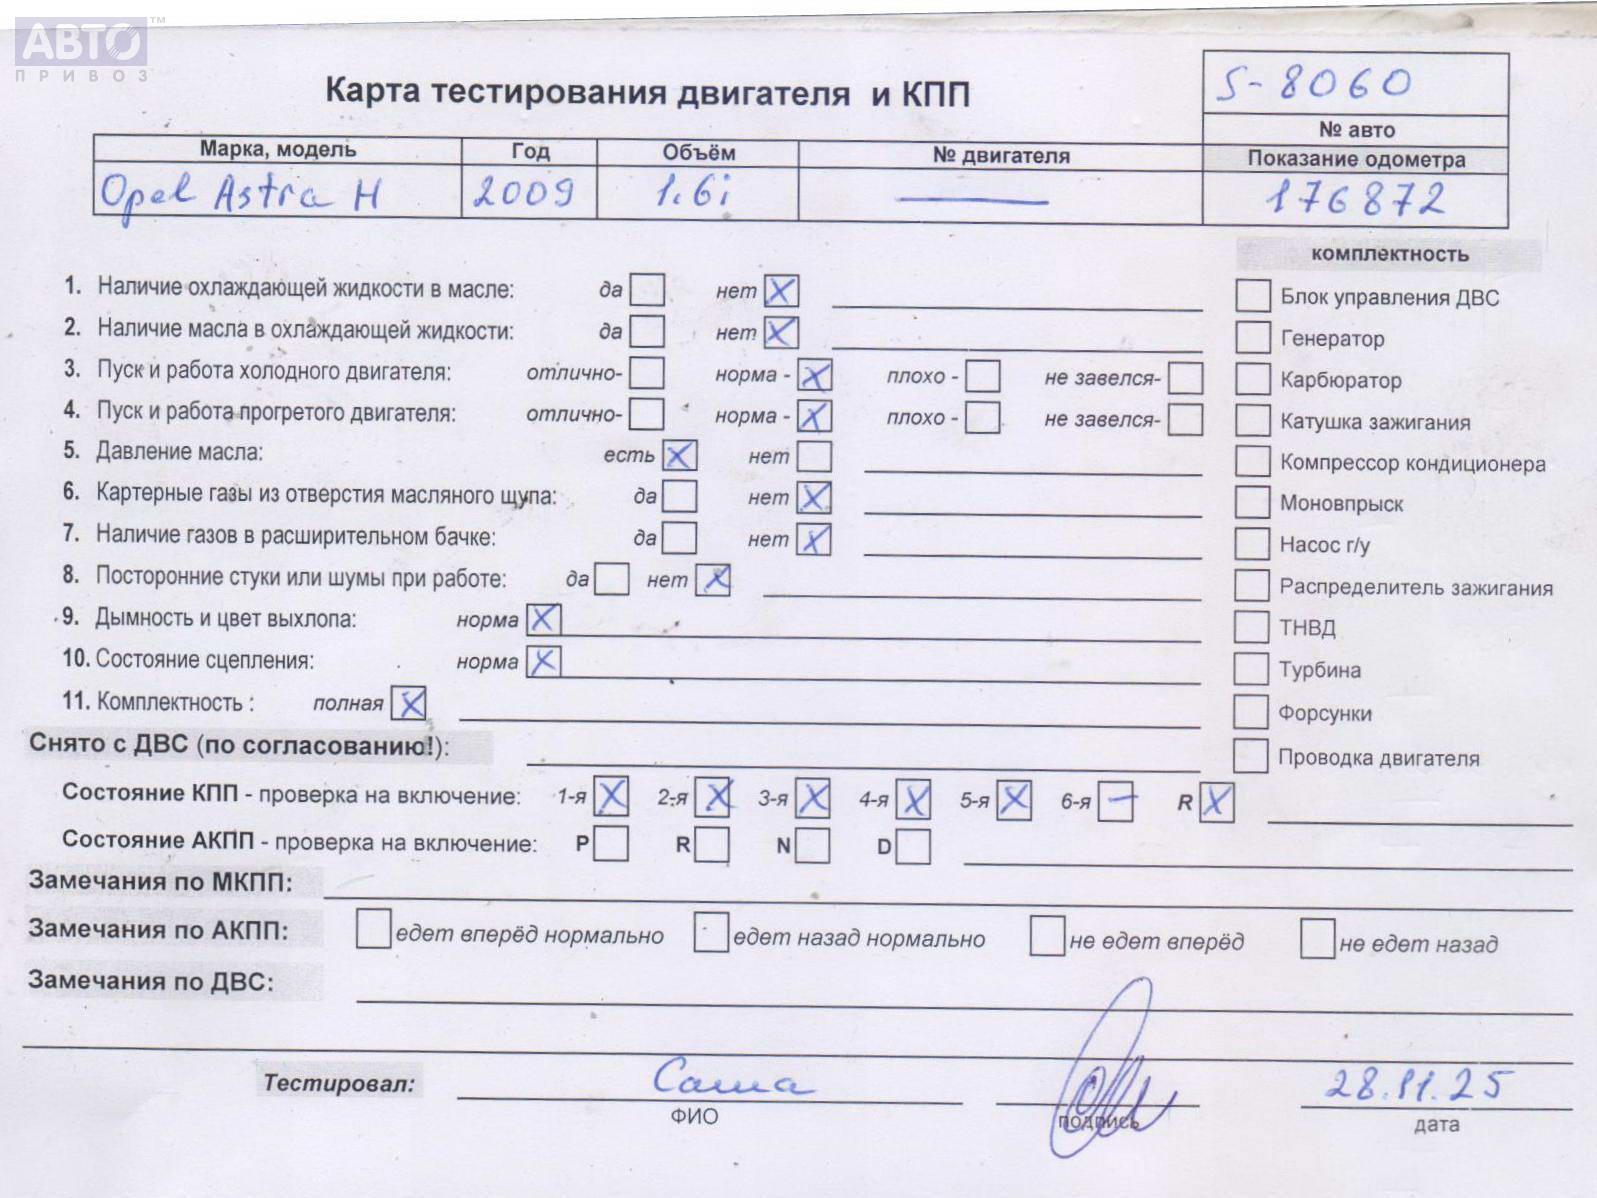 АВТО™
ПРИВОЗ
Карта тестирования двигателя и КПП
S-8060
№ авто
Марка, модель Год Объём № двигателя Показание одометра
Opel Astra H 2009 1.6i — 176872
комплектность
1. Наличие охлаждающей жидкости в масле: да нет X
Блок управления ДВС
2. Наличие масла в охлаждающей жидкости: да нет X
Генератор
3. Пуск и работа холодного двигателя: отлично- норма - X плохо - не завелся-
Карбюратор
4. Пуск и работа прогретого двигателя: отлично- норма - X плохо - не завелся-
Катушка зажигания
5. Давление масла: есть X нет
Компрессор кондиционера
6. Картерные газы из отверстия масляного щупа: да нет X
Моновпрыск
7. Наличие газов в расширительном бачке: да нет X
Насос г/у
8. Посторонние стуки или шумы при работе: да нет X
Распределитель зажигания
9. Дымность и цвет выхлопа: норма X
ТНВД
10. Состояние сцепления: норма X
Турбина
11. Комплектность : полная X
Форсунки
Снято с ДВС (по согласованию!):
Проводка двигателя
Состояние КПП - проверка на включение: 1-я X 2-я X 3-я X 4-я X 5-я X 6-я — R X
Состояние АКПП - проверка на включение: P R N D
Замечания по МКПП:
Замечания по АКПП: едет вперёд нормально едет назад нормально не едет вперёд не едет назад
Замечания по ДВС:
Тестировал: Саша 28.11.25
ФИО подпись дата